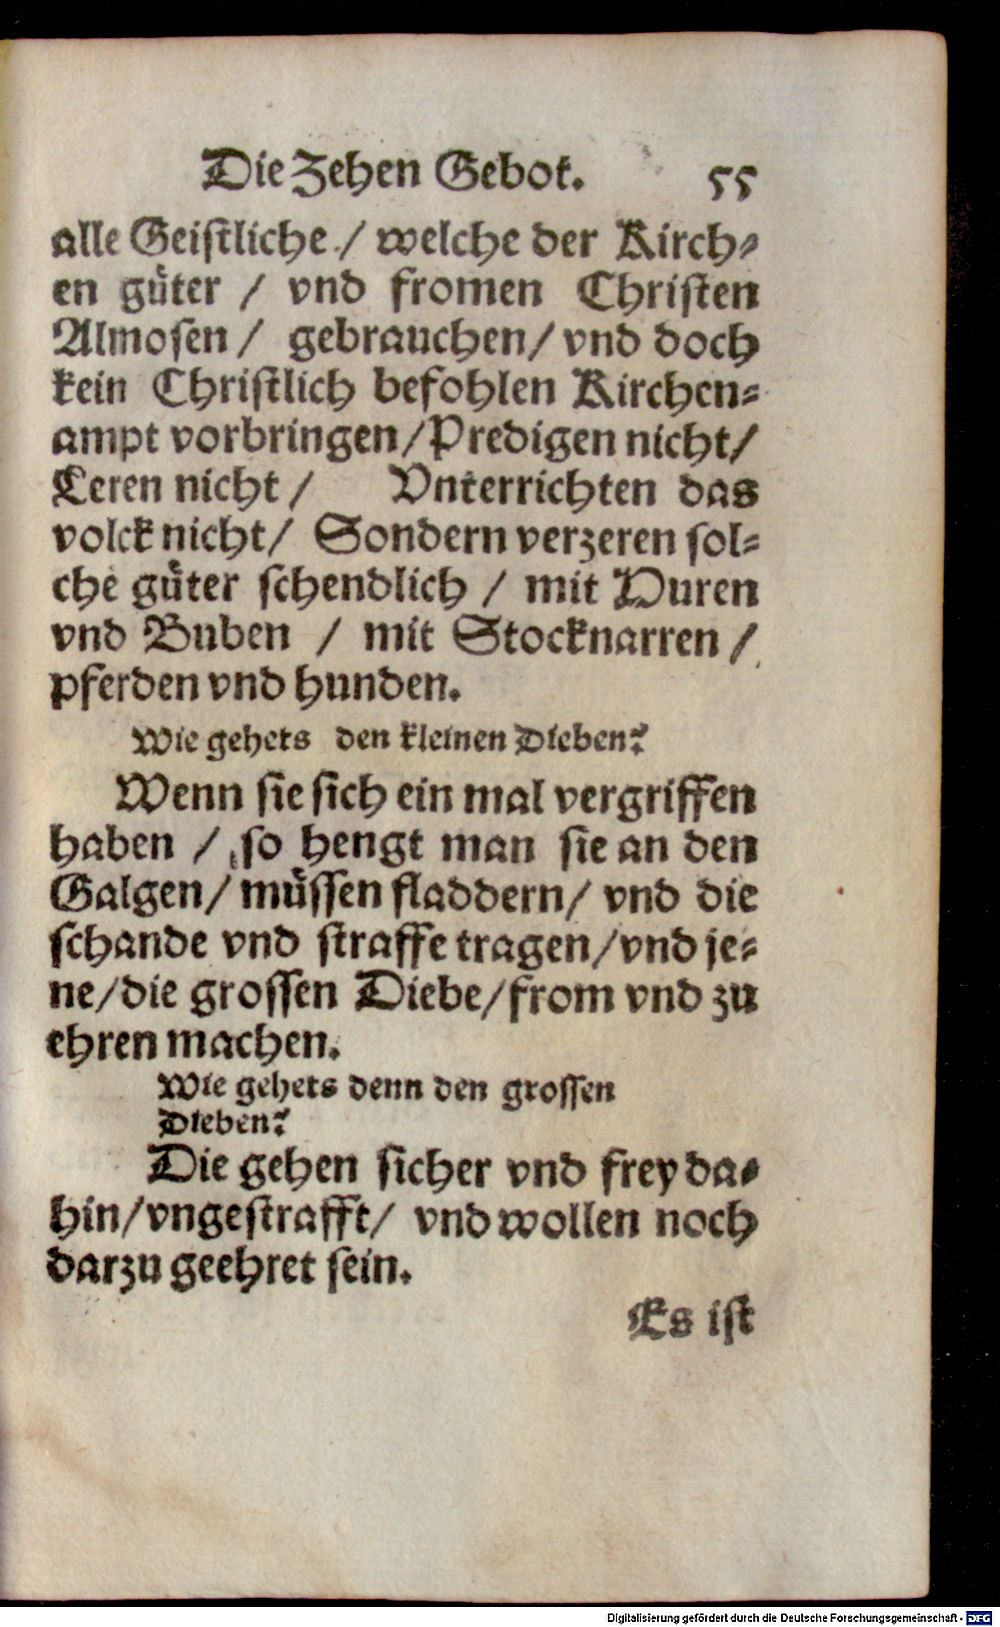 Die Zehen Gebot. 55
alle Geistliche / welche der Kirch-
en güter / vnd fromen Christen
Almosen / gebrauchen / vnd doch
kein Christlich befohlen Kirchen-
ampt vorbringen / Predigen nicht /
Leren nicht / Vnterrichten das
volck nicht / Sondern verzeren sol-
che güter schendlich / mit Huren
vnd Buben / mit Stocknarren /
pferden vnd hunden.
Wie gehets den kleinen Dieben?
Wenn sie sich ein mal vergriffen
haben / so hengt man sie an den
Galgen / müssen fladdern / vnd die
schande vnd straffe tragen / vnd je-
ne / die grossen Diebe / from vnd zu
ehren machen.
Wie gehets denn den grossen
Dieben?
Die gehen sicher vnd frey da-
hin / vngestrafft / vnd wollen noch
darzu geehret sein.
Es ist
Digitalisierung gefördert durch die Deutsche Forschungsgemeinschaft - DFG